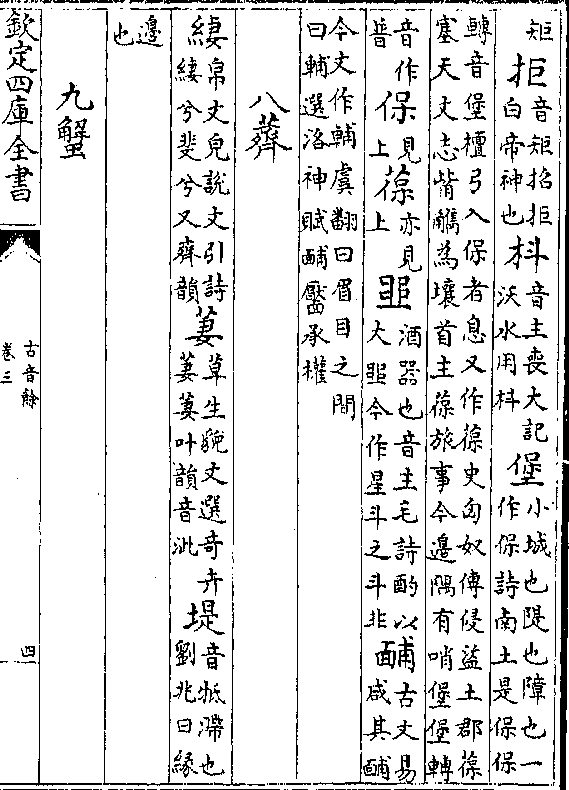 矩拒音矩招拒白帝神也枓音主喪大記沃水用枓堡小城也隄也障也一作保詩南土是保保
轉音堡檀弓入保者息又作葆史匈奴傳侵盜土郡葆塞天文志觜觿為壤首主葆旅事今邊隅有哨堡堡轉
音作普保見上葆亦見上酒器也音主毛詩酌以大今作星斗之斗非䩉古文易咸其䩉
今文作輔虞翻曰眉目之間曰輔選洛神賦䩉靨承權
八薺
緀帛文皃說文引詩緀兮斐兮又齊韻萋草生貌文選奇卉萋萋叶韻音泚堤音牴滯也劉兆曰緣
邊也
九蟹
欽定四庫全書
古音餘
卷三
四